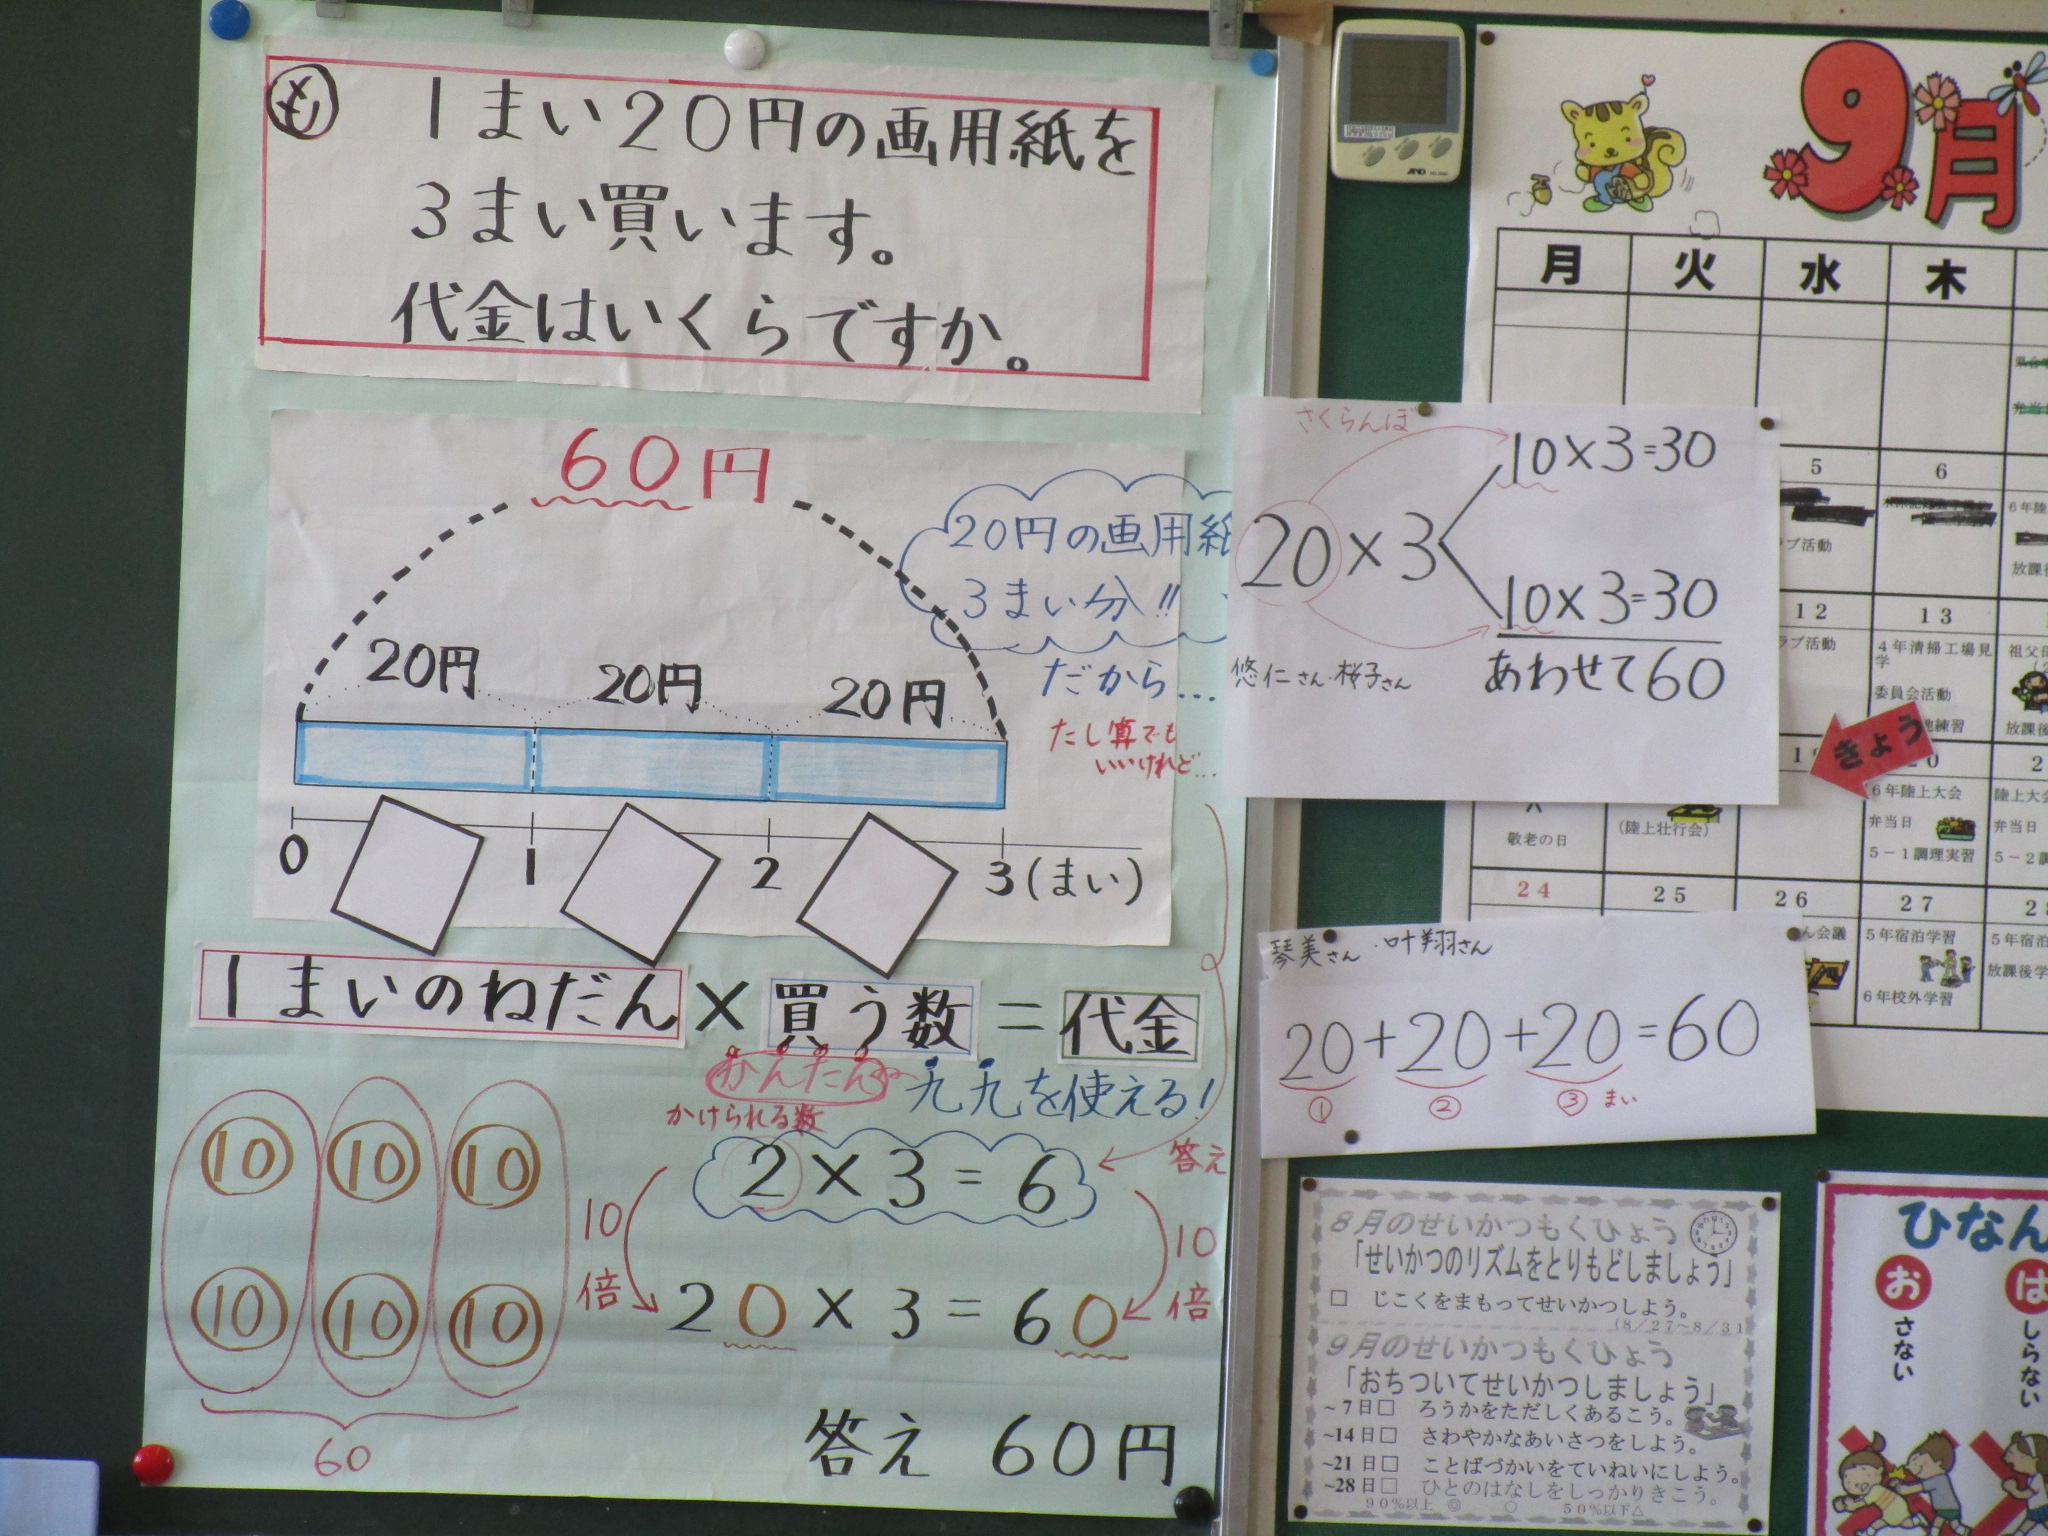 も
1まい20円の画用紙を
3まい買います。
代金はいくらですか。
60円
20円 20円 20円
0 1 2 3(まい)
20円の画用紙
3まい分!!
だから...
たし算でも
いいけれど...
1まいのねだん×買う数=代金
かんたん 九九を使える!
かけられる数
2×3=6
答え
10倍
10倍
20×3=60
10 10 10
10 10 10
60
答え 60円
さくらんぼ
10×3=30
20×3
10×3=30
あわせて60
悠仁さん・桜子さん
琴美さん・叶翔さん
20+20+20=60
① ② ③まい
9月
月 火 水 木
5 6
ブ活動
放課後
12 13
ラブ活動
4年清掃工場見学
委員会活動
きょう
敬老の日
(陸上壮行会)
6年陸上大会
弁当日
5-1調理実習
陸上大会
弁当日
5-2調
24 25 26 27 28
ん会議
5年宿泊学習
6年校外学習
5年宿泊
放課後学
8月のせいかつもくひょう
「せいかつのリズムをとりもどしましょう」
□ じこくをまもってせいかつしよう。
(8/27~8/31
9月のせいかつもくひょう
「おちついてせいかつしましょう」
~7日□ ろうかをただしくあるこう。
~14日□ さわやかなあいさつをしよう。
~21日□ ことばづかいをていねいにしよう。
~28日□ ひとのはなしをしっかりきこう。
90%以上◎ ○ 50%以下△
ひなん
おさない
はしらない
AND